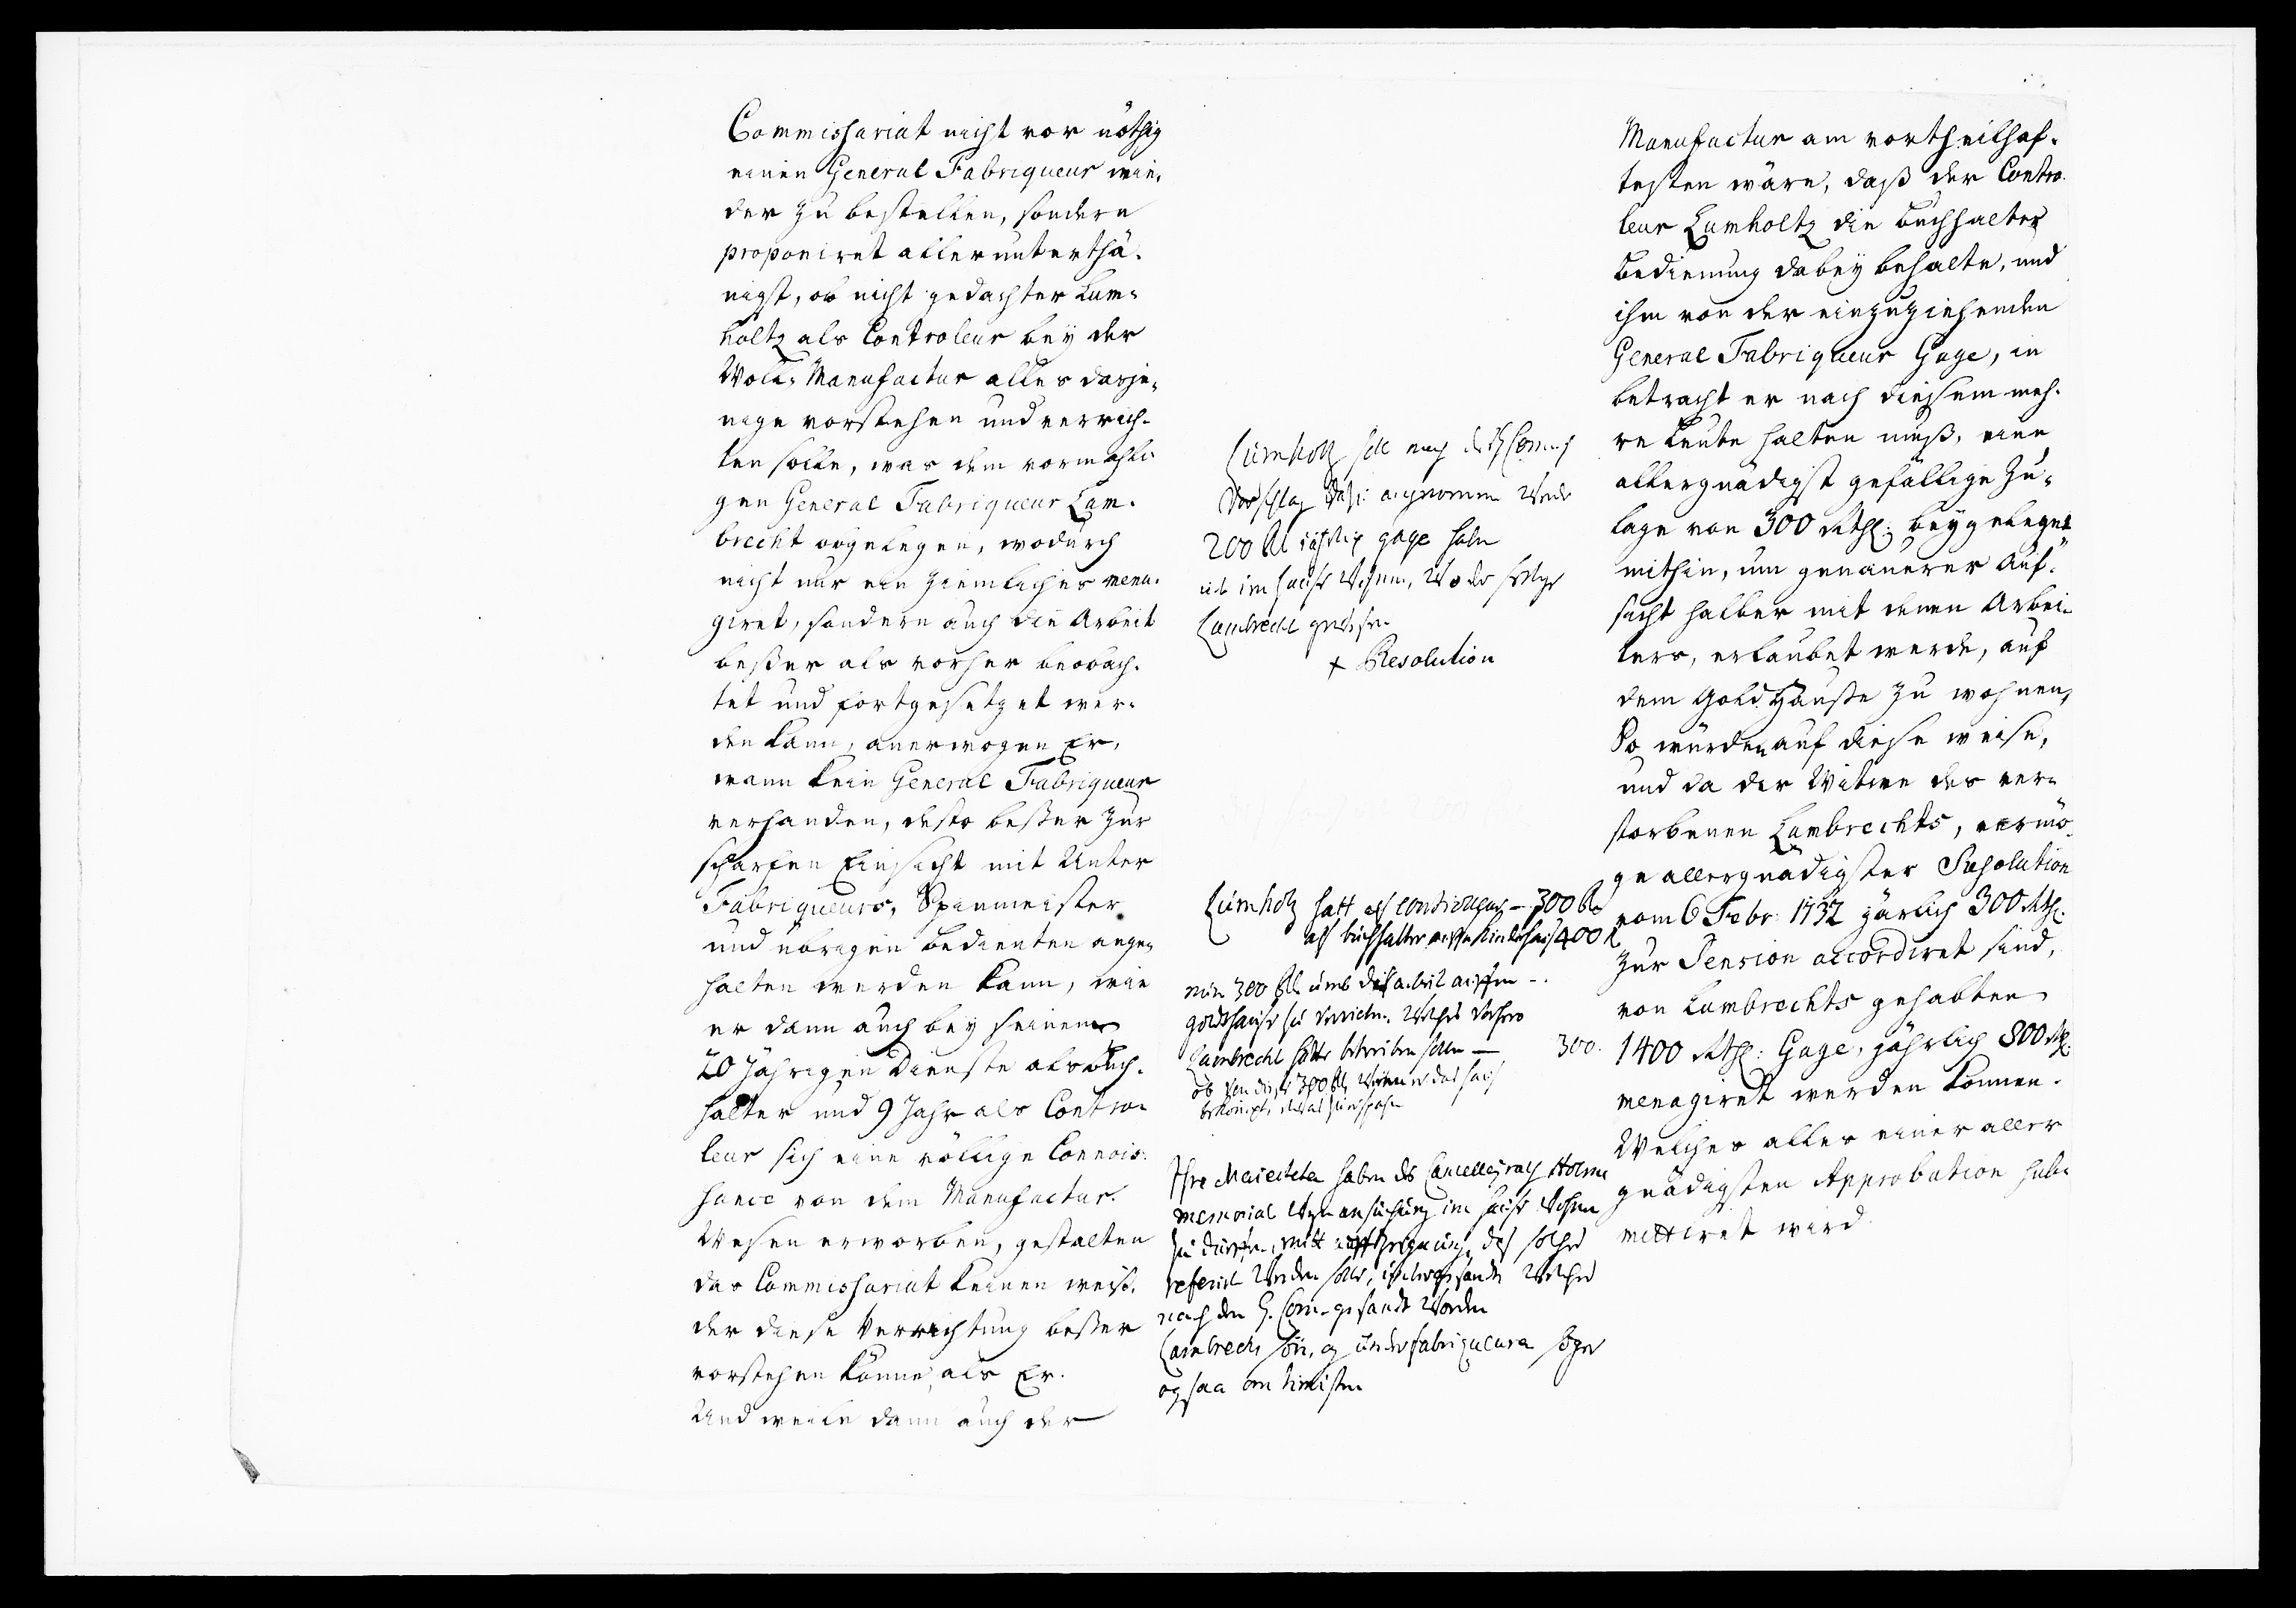 Commissariat nicht vor nöthig
einen General Fabriqueur wie-
der zu bestellen, sondern
proponiret allerunterthä-
nigst, ob nicht gedachter Lum-
holtz als Controleur bey der
Woll-Manufactur alles dasje-
nige vorstehen und verrich-
ten solle, was dem vormahli-
gen General Fabriqueur Lam-
brecht obgelegen, wodurch
nicht nur ein ziemliches mena-
giret, sondern auch die Arbeit
beßer als vorher beobach-
tet und fortgesetzet wer-
den kann, anerwogen Er,
wann kein General Fabriqueur
verhanden, desto beßer zur
scharfen Einsicht mit Unter
Fabriqueurs, Spinmeister
und übrigen bedienten ange-
halten werden kann, wie
er dann auch bey seinem
20 Jährigen Dienste als Buch-
halter und 9 Jahr als Contro-
leur sich eine völlige Connois-
sance von dem Manufactur-
Wesen erworben, gestalten
das Commissariat keinen weiß,
der diese Verrichtung beßer
vorstehen könne, als Er.
Und weile dann auch der
Lumholtz soll nach
Vorschlag angenommen
200 jährlich gage haben
im hause wohnen, wo der
Lambrecht
+ Resolution
Lumholtz hatt als controleur — 300
als buchhalter 400
300 umb
goldthause zu
Lambrecht hatte — 300.
ob von 300 das haus
bekompt,
Ihre Maiestetten haben des Cancelleyrath Holm
memorial ansuchung im hause wohnen
zu dürffen, mitt das solches
referirt werden solle, welches
nach den G. Com. gesandt worden
Lambrechs sön, og underfabriqueurn søger
ogsaa om tienisten
Manufactur am vortheilhaf-
testen wäre, daß der Contro-
leur Lumholtz die Buchhalter
bedienung dabey behalte, und
ihm von der einzuziehenden
General Fabriqueur Gage, in
betracht er nach diesem meh-
re Leute halten muß, eine
allergnädigst gefällige Zu-
lage von 300 Rthl: beygeleget,
mithin, um genauerer Auf-
sicht halber mit denen Arbei-
ters, erlaubet werde, auf
dem Gold Hause zu wohnen,
So würden auf diese weise,
und da der Witwe des ver-
storbenen Lambrechts, vermö-
ge allergnädigster Resolution
vom 6 Febr: 1732 järlich 300 Rthl:
zur Pension accordiret sind,
von Lambrechts gehabten
1400 Rthl: Gage, jährlich 800 Rthl:
menagiret werden können.
Welches alles einer aller
gnädigsten Approbation sub-
mittiret wird.